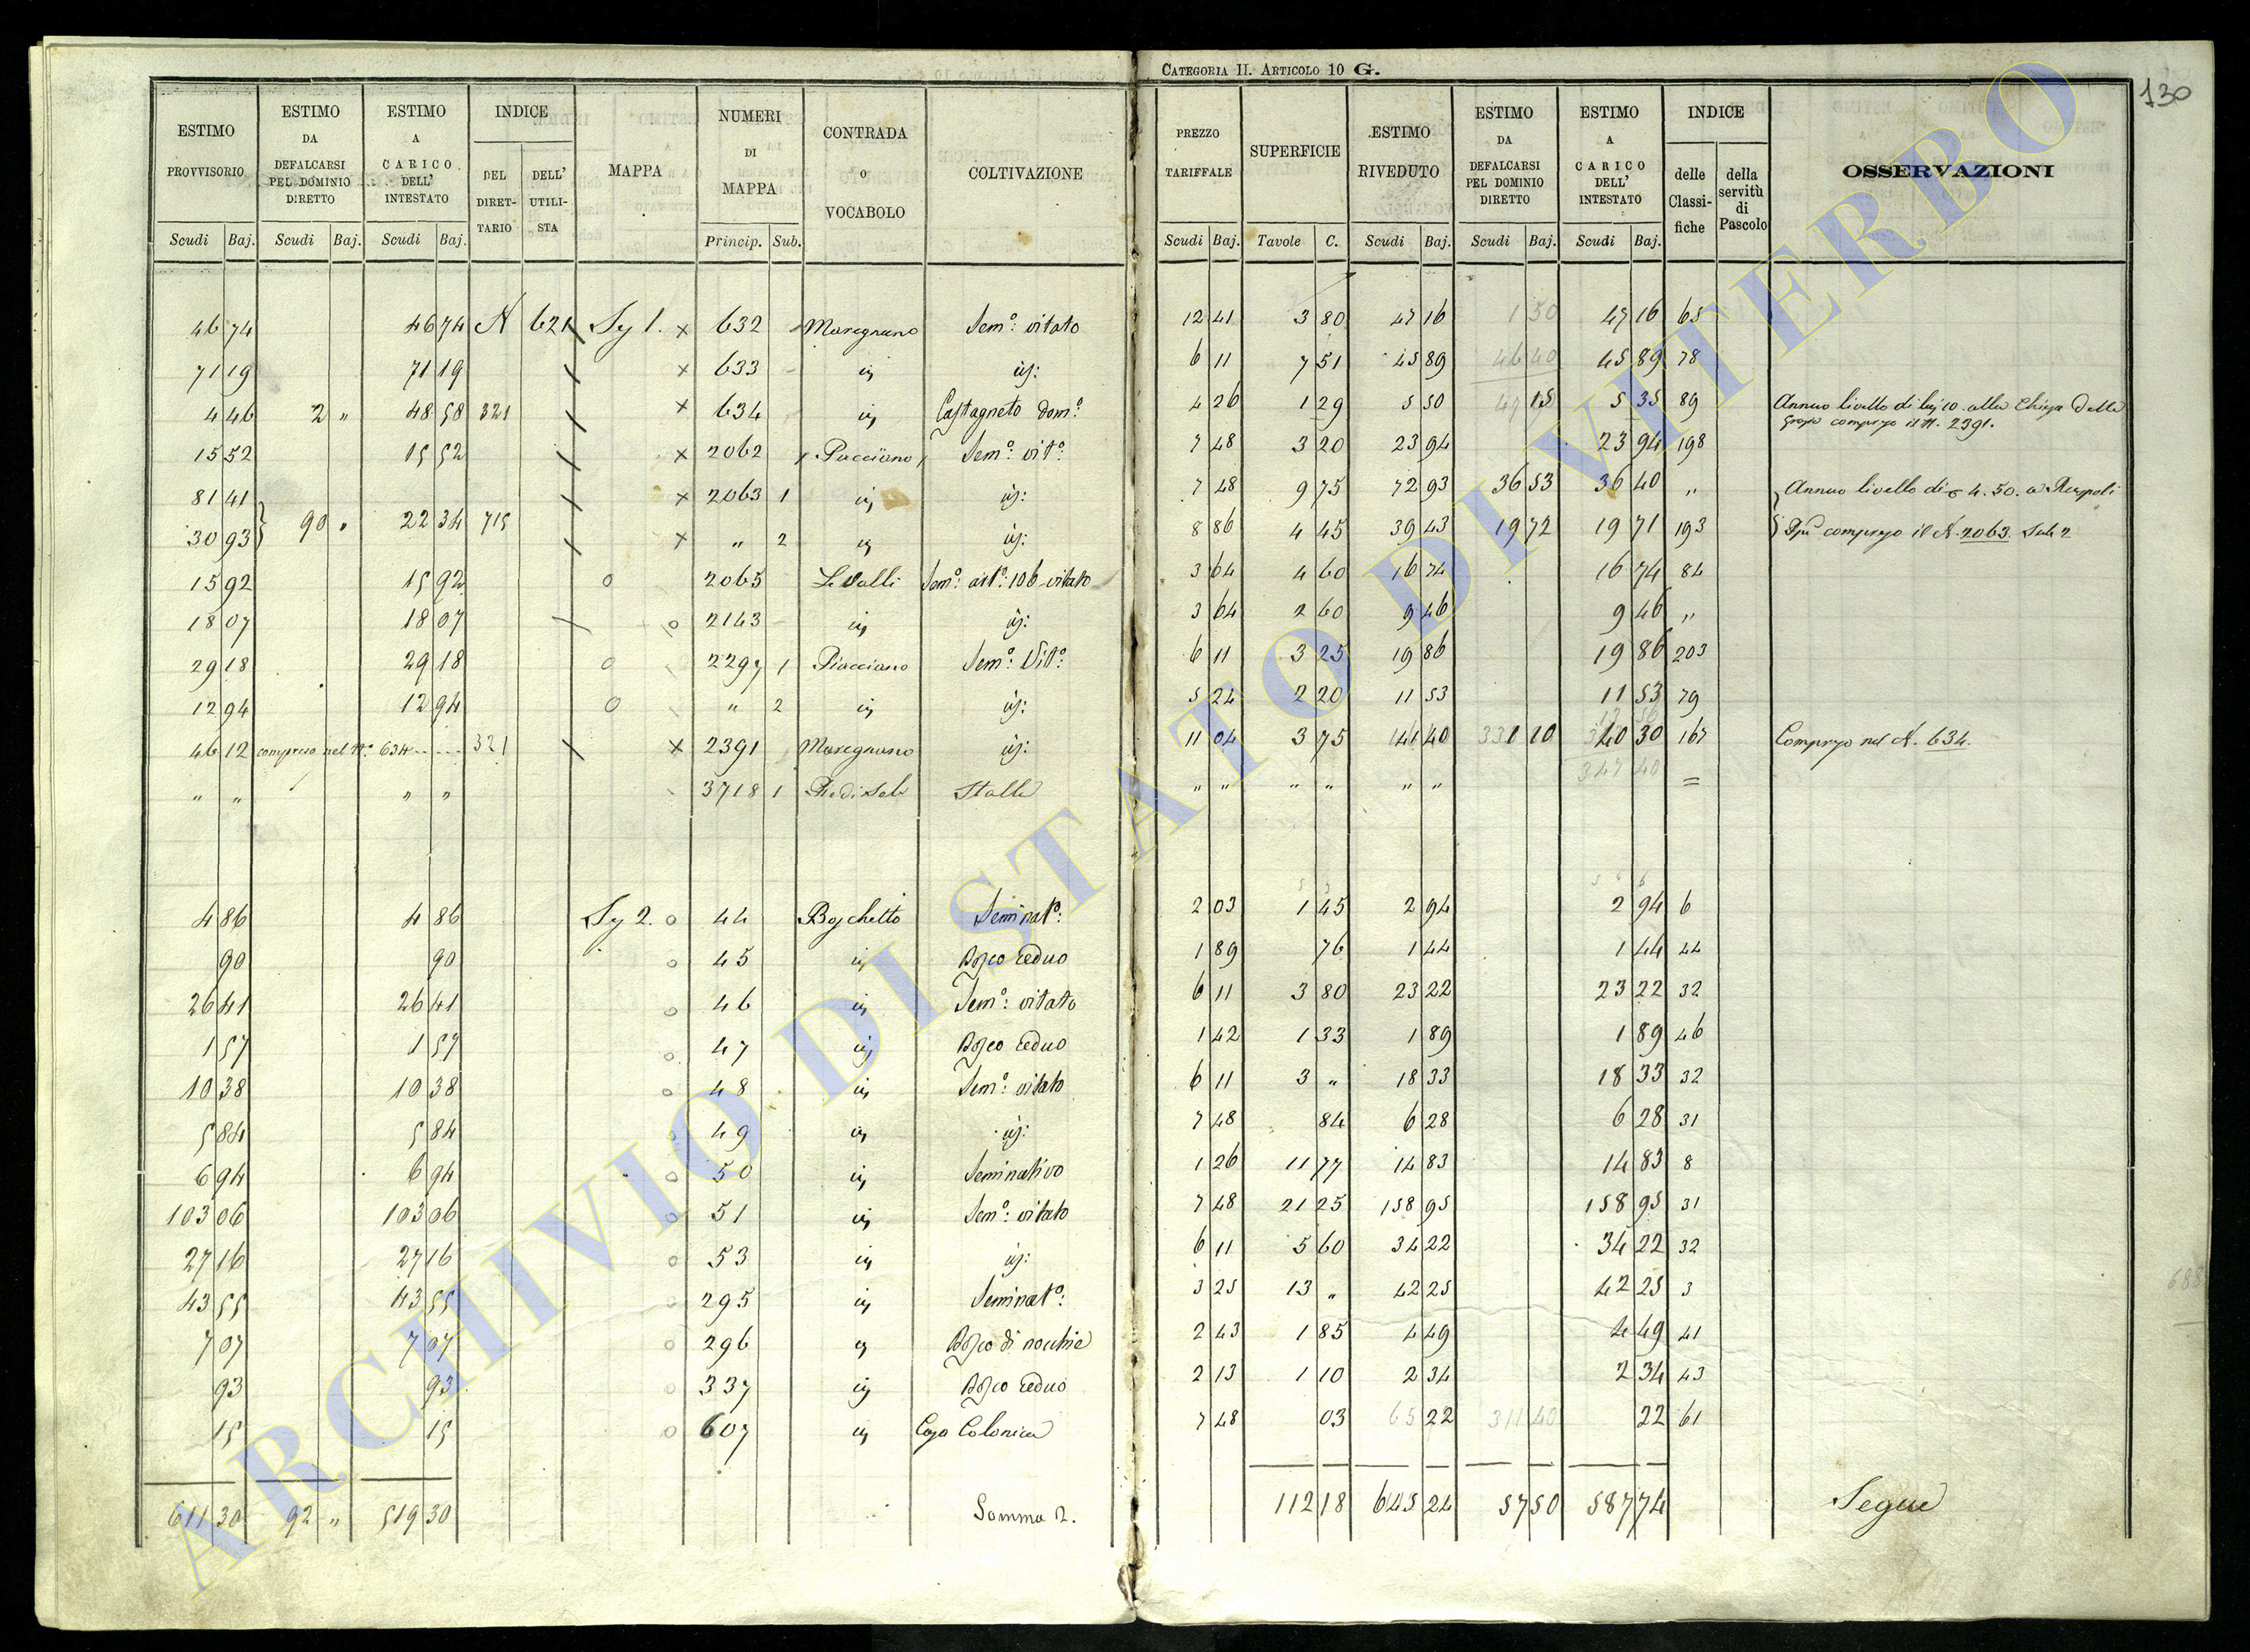 CATEGORIA II. ARTICOLO 10 G.
130
ESTIMO PROVVISORIO | ESTIMO DA DEFALCARSI PEL DOMINIO DIRETTO | ESTIMO A CARICO DELL' INTESTATO | INDICE DEL DIRETTARIO | DELL' UTILISTA | MAPPA | NUMERI DI MAPPA | CONTRADA o VOCABOLO | COLTIVAZIONE | PREZZO TARIFFALE | SUPERFICIE | ESTIMO RIVEDUTO | ESTIMO DA DEFALCARSI PEL DOMINIO DIRETTO | ESTIMO A CARICO DELL' INTESTATO | INDICE delle Classifiche | della servitù di Pascolo | OSSERVAZIONI
Scudi Baj. | Scudi Baj. | Scudi Baj. | Princip. Sub. | Scudi Baj. | Tavole C. | Scudi Baj. | Scudi Baj. | Scudi Baj.
46 74 46 74 N 621 Sy 1. x 632 Maregnano Sem.o: vitato 12 41 3 80 47 16 1 50 47 16 65
71 19 71 19 x 633 " id: 6 11 7 51 45 89 46 40 45 89 78
4 46 2 " 48 58 321 x 634 " Castagneto dom.o 4 26 1 29 5 50 15 5 35 89 Annuo livello di 10 alla Chiesa della
compreso il N. 2391.
15 52 15 52 x 2062 Pacciano Sem.o: vit.o 7 48 3 20 23 94 23 94 198
81 41 x 2063 1 id: 7 48 9 75 72 93 36 53 36 40 " Annuo livello di 4. 50. a Ruspoli
30 93 90 " 22 34 715 x " 2 id: 8 86 4 45 39 43 19 72 19 71 193 compreso il N. 2063. Sub 2
15 92 15 92 o 2065 Le Valli Sem.o: 106 vitato 3 64 4 60 16 74 16 74 84
18 07 18 07 o 2143 id: 3 64 2 60 9 46 9 46 "
29 18 29 18 o 2297 1 Piacciano Sem.o: Vit.o 6 11 3 25 19 86 19 86 203
12 94 12 94 o " 2 id: 5 24 2 20 11 53 11 53 79
46 12 compreso nel N.o 634 321 x 2391 Maregnano id: 11 04 3 75 41 40 1 10 40 30 167 Compreso nel N. 634.
" " " " 3718 1 Stalla " " " " " " =
4 86 4 86 Sy 2. o 44 Boschetto Seminat.o: 2 03 1 45 2 94 2 94 6
90 90 o 45 Bosco ceduo 1 89 76 1 44 1 44 44
26 41 26 41 o 46 Sem.o: vitato 6 11 3 80 23 22 23 22 32
1 57 1 57 o 47 Bosco ceduo 1 42 1 33 1 89 1 89 46
10 38 10 38 o 48 Sem.o: vitato 6 11 3 " 18 33 18 33 32
5 84 5 84 o 49 id: 7 48 84 6 28 6 28 31
6 94 6 94 o 50 Seminativo 1 26 11 77 14 83 14 83 8
103 06 103 06 o 51 Sem.o: vitato 7 48 21 25 158 95 158 95 31
27 16 27 16 o 53 id: 6 11 5 60 34 22 34 22 32
43 55 43 55 o 295 Seminat.o: 3 25 13 " 42 25 42 25 3
7 07 7 07 o 296 Bosco di nocchie 2 43 1 85 4 49 4 49 41
93 93 o 337 Bosco ceduo 2 13 1 10 2 34 2 34 43
15 15 o 607 Casa Colonica 7 48 03 22 22 61
611 30 92 " 519 30 Somma 2. 112 18 645 24 57 50 587 74 Segue
ARCHIVIO DI STATO DI VITERBO